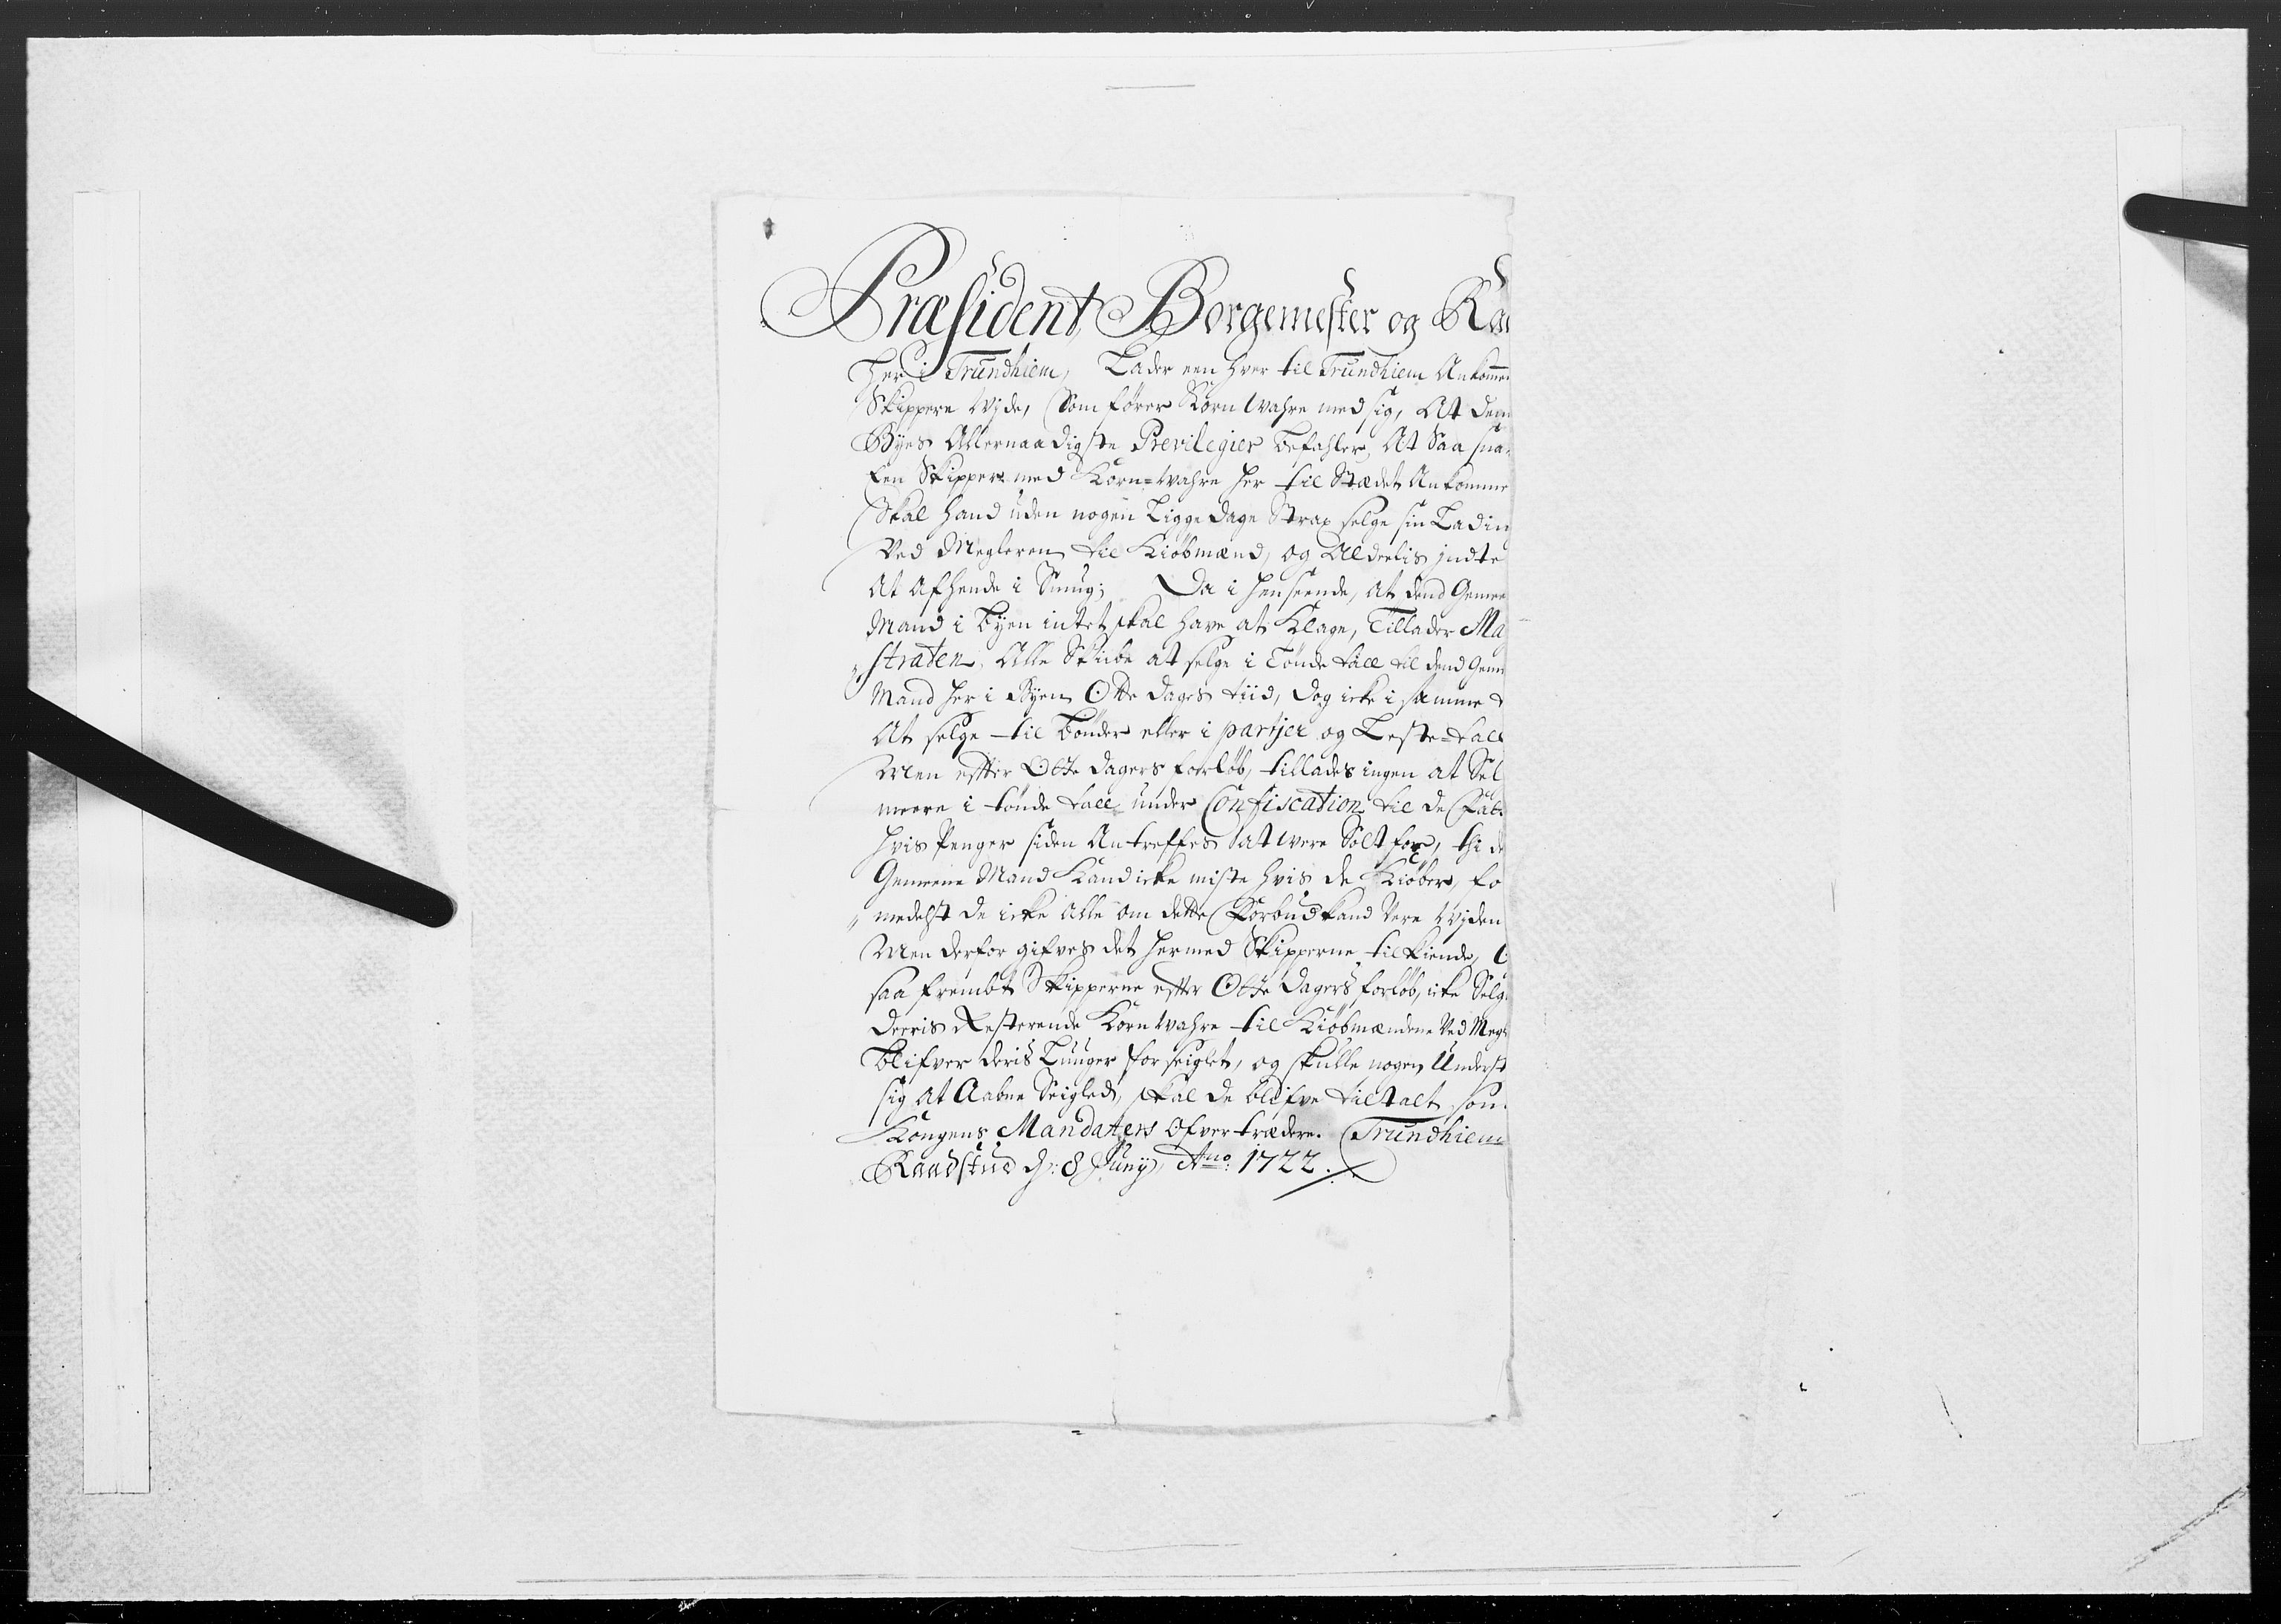 Præsident Borgemester og Raa
Her i Trundhiem, Lader een hver til Trundhiem Ankomme
Skippere Wide, Som fører Korn Wahre med sig, At den
Byes Allernaadigste Previlegier befahler, At Saa sna
Een Skipper med Korn=Wahre her til Stædet Ankomme
Skal hand uden nogen Ligge dage Strax selge sin Ladin
Ved Megleren til Kiøbmænd, og Aldeelis indte
At Afhende i Smug; Da i henseende, at dend Geme
Mand i Byen intet skal have at Klage, Tillader Ma
straten, Alle Skibe at selge i Tønde tall til dend Geme
Mand her i Byen Otte dages tiid, dog icke i samme t
At selge til Bønder eller i partjer og Leste=tall
Men efter Otte dagers forløb, tillades ingen at Sel
meere i tønde tall under Confiscation til de Fatt
hvis Penger siden Antreffes at were Solt for, thi de
Gemeene Mand Kand icke miste hvis de Kiøber, fo
medelst de icke Alle om dette Forbud kand Vere Widen
Men derfor gifves det hermed Skipperne tilkiende, 
saa frembt Skipperne efter Otte dagers forløb, icke Selge
deeris Resterende Korn Wahre til Kiøbmændene Ved Megl
blifver deris Luuger forseiglet, og skulle nogen Underst
sig At Aabne Seigled, skal de blifve tiltalt som
Kongens Mandaters Ofvertrædere. Trundhiem
Raadstue d: 8 Juny Ano: 1722.